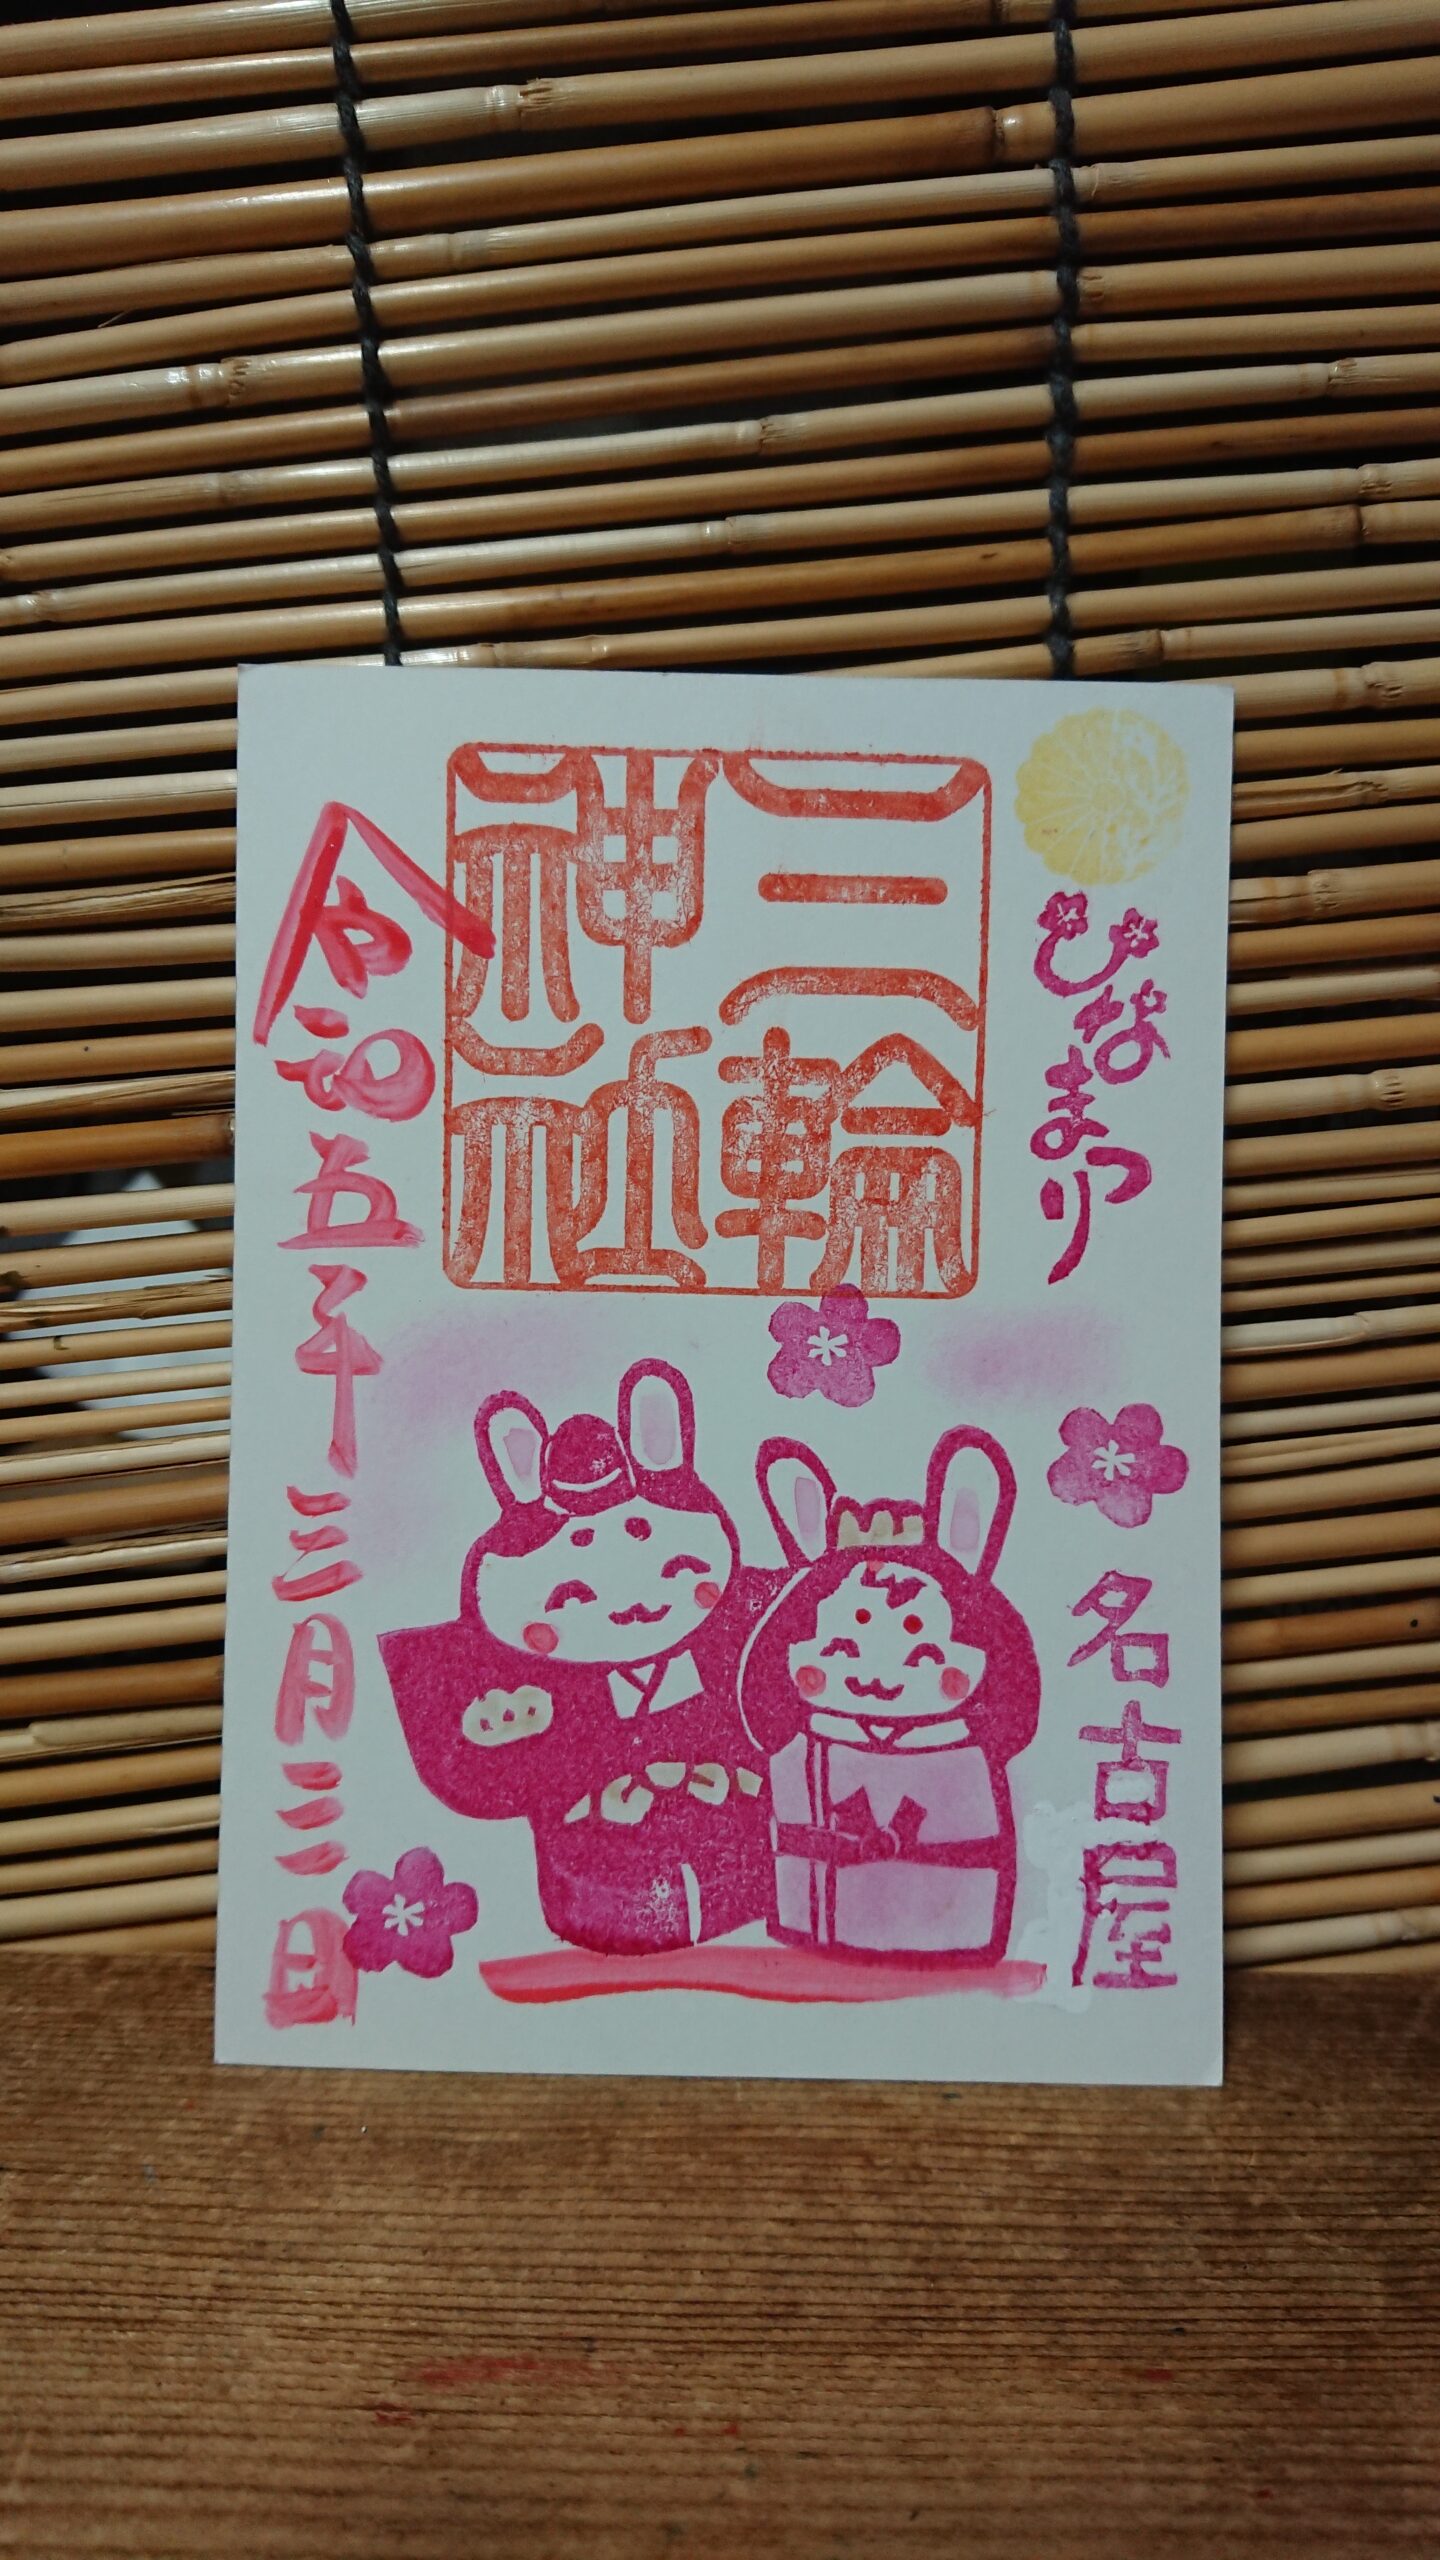 ひなまつり
名古屋
三輪
神社
令和五年三月三日